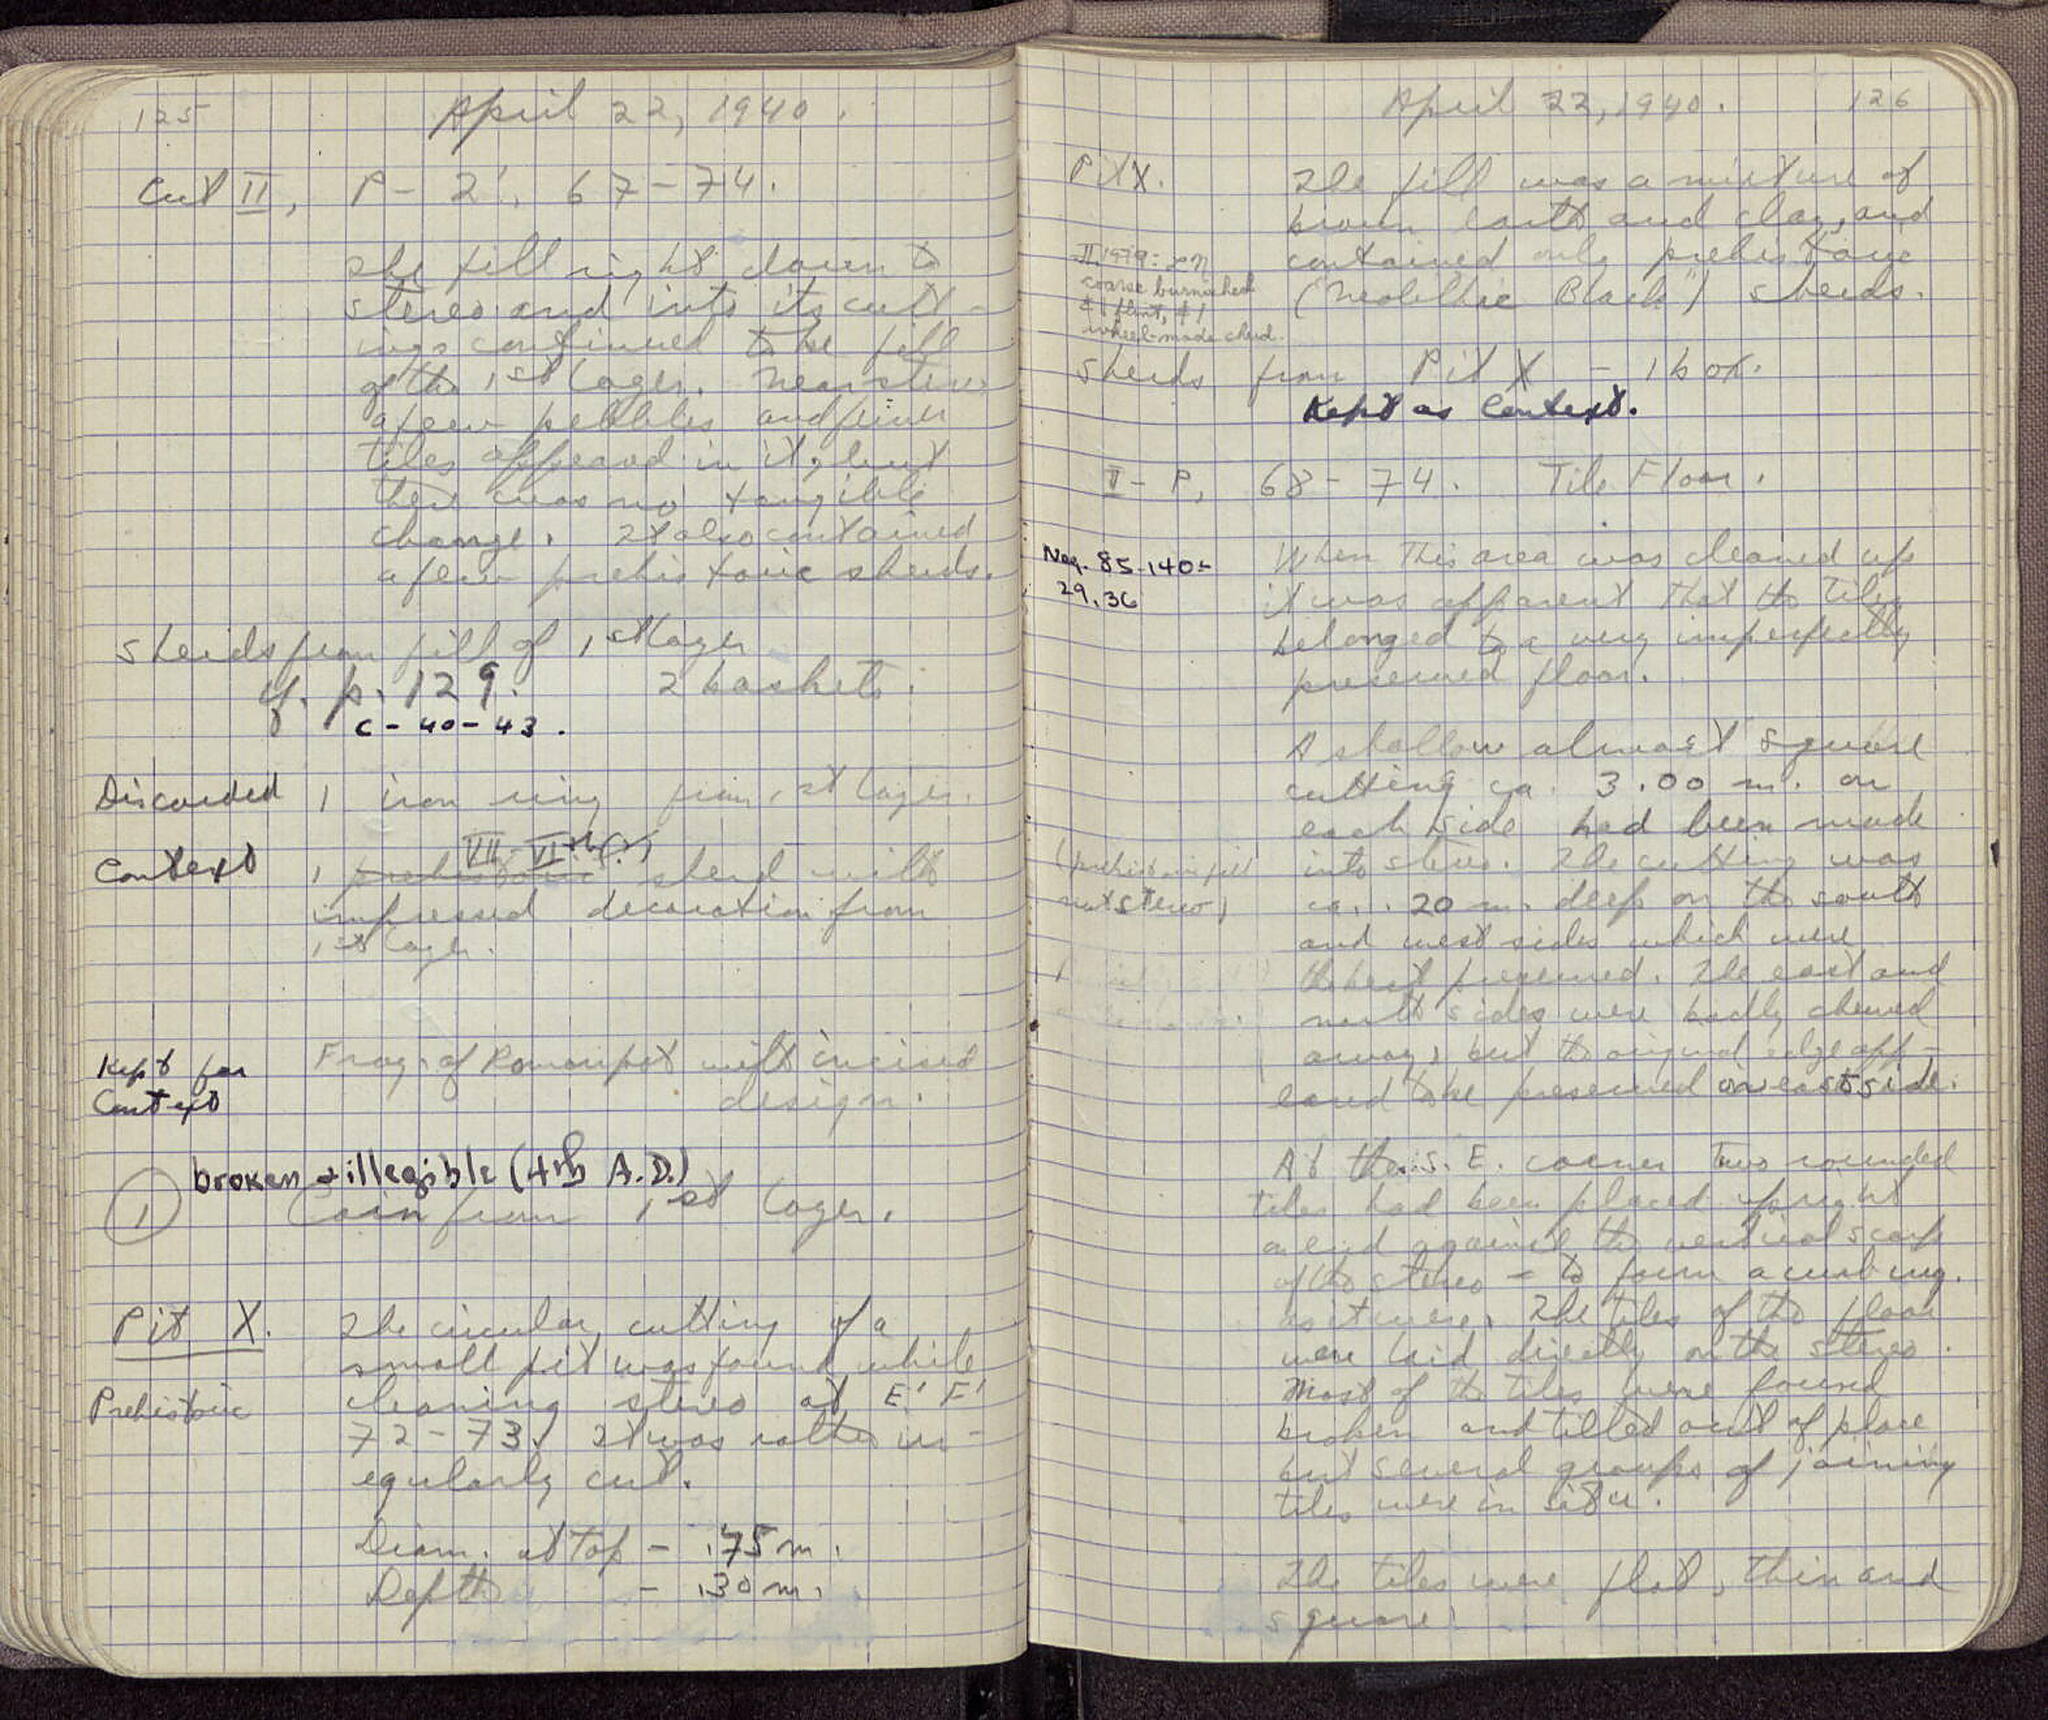 125
April 22, 1940.
Cut II, P - 2', 67-74.
The fill right down to
stereo and into its cutt-
ings continued to be fill
of the 1st layer. Near stereo
a few pebbles and fewer
tiles appeared in it, but
there was no tangible
change. It also contained
a few prehistoric sherds.
Sherds from fill of 1st layer
cf. p. 129. 2 baskets.
C-40-43.
Discarded 1 iron ring from 1st layer.
VII-VIth(?)
Context 1 prehistoric sherd with
impressed decoration from
1st layer.
Kept for Frag. of Roman pot with incised
Context design.
broken & illegible (4th A.D.)
1 Coin from 1st layer.
Pit X. The circular cutting of a
small pit was found while
Prehistoric cleaning stereo at E' F'
72-73. It was rather irr-
egularly cut.
Diam. at top - .75 m.
Depth - .30 m.
April 22, 1940. 126
Pit X. The fill was a mixture of
brown earth and clay, and
contained only prehistoric
("Neolithic Black") sherds.
II.1979:
coarse burnished
& 1 flint, & 1
wheel-made sherd.
Sherds from Pit X - 1 box.
Kept as Context.
II - P, 68-74. Tile Floor.
Neg. 85-140-
29, 36
When this area was cleaned up
it was apparent that the tiles
belonged to a very imperfectly
preserved floor.
A shallow almost square
cutting ca. 3.00 m. on
each side had been made
(prehistoric fill into stereo. The cutting was
not stereo) ca. .20 m. deep on the south
and west sides which were
the best preserved. The east and
north sides were badly chewed
away, but the original edge app-
eared to be preserved on east side.
At the S.E. corner two rounded
tiles had been placed upright
on end against the vertical scarp
of the stereo - to form a curbing.
as it were. The tiles of the floor
were laid directly on the stereo.
Most of the tiles were found
broken and tilted out of place
but several groups of joining
tiles were in situ.
The tiles were flat, thin and
square.